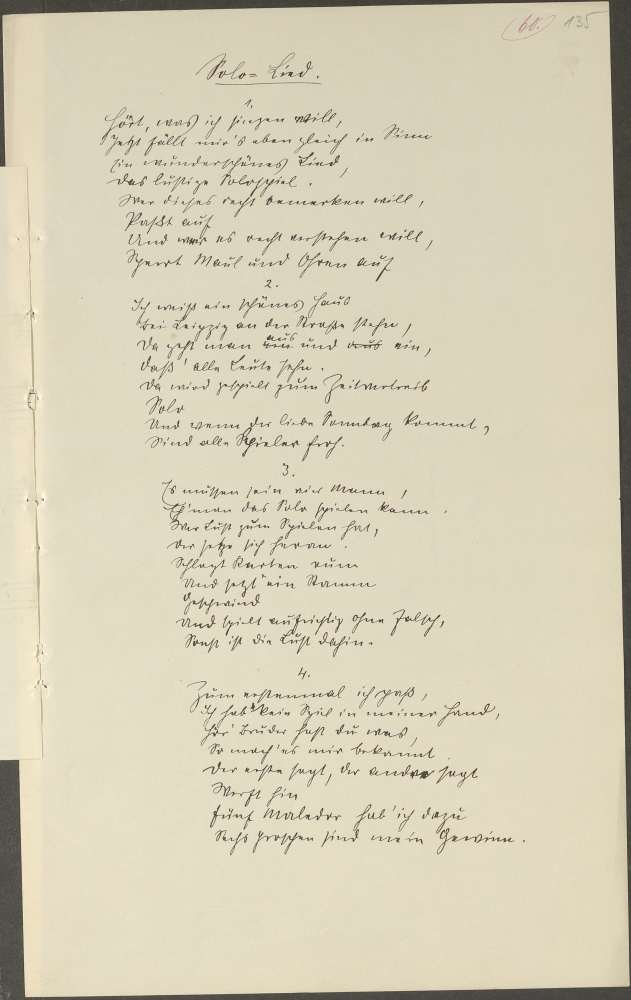 (60.) 135
Solo-Lied.
1.
Hört, was ich singen will,
Jetzt fällt mir's eben gleich in Sinn
Ein wunderschönes Lied,
Das lustige Solospiel.
Wer dieses recht bemerken will,
Paßt auf
Und wer es recht verstehen will,
Sperrt Maul und Ohren auf
2.
Ich weiß ein schönes Haus
Bei Leipzig an der Straße stehn,
Da geht man aus und ein,
Daß' alle Leute sehn.
Da wird gespielt zum Zeitvertreib
Solo
Und wenn der liebe Sonntag kommt,
Sind alle Spieler froh.
3.
Es müssen sein vier Mann,
Eh' man das Solo spielen kann.
Wer Lust zum Spielen hat,
Der setze sich heran.
Schlagt Karten rum
Und setzt ein Stamm
Geschwind
Und spielt aufrichtig ohne Falsch,
Sonst ist die Lust dahin.
4.
Zum erstenmal ich paß,
Ich hab' kein Spiel in meiner Hand,
Hör' Bruder hast du was,
So mach' es mir bekannt
Der erste sagt, der andre sagt
Werft hin
Fünf Matador hab' ich dazu
Sechs Groschen sind mein Gewinn.